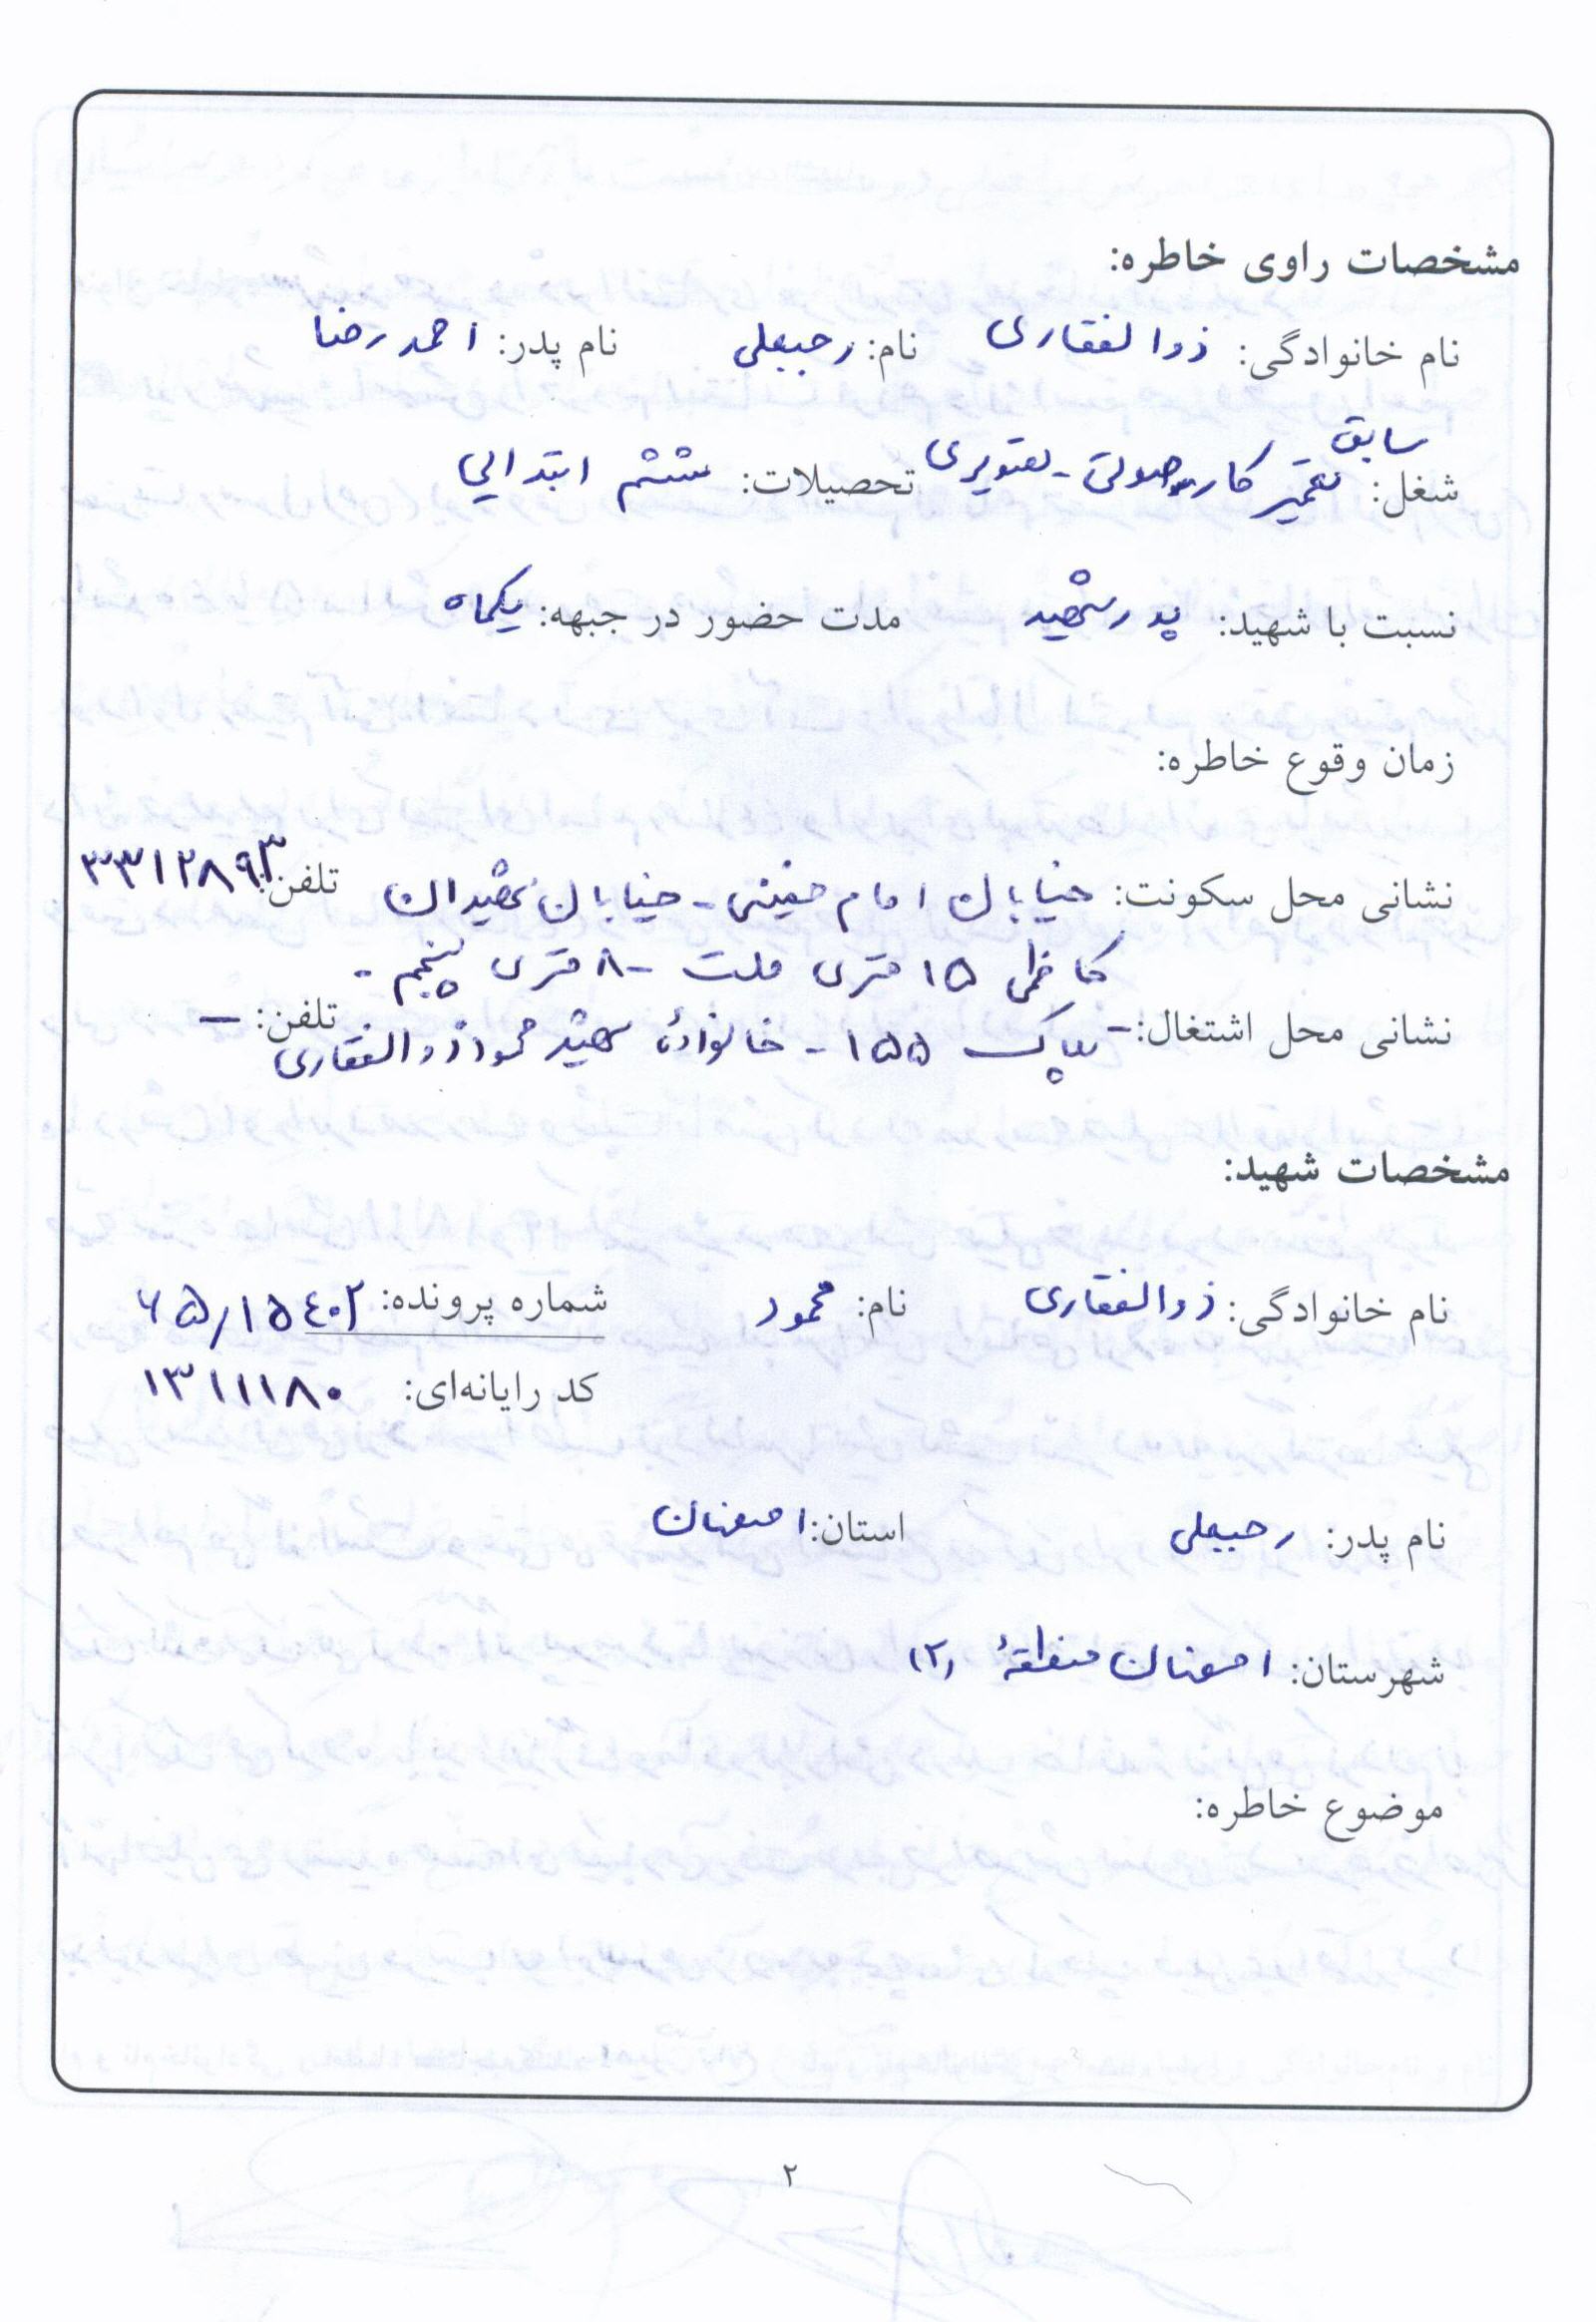 مشخصات راوی خاطره:
نام خانوادگی: ذوالفقاری نام: رجبعلی نام پدر: احمدرضا
سابق
شغل: تعمیر کار صوتی - تصویری تحصیلات: ششم ابتدایی
نسبت با شهید: پدر شهید مدت حضور در جبهه: یکماه
زمان وقوع خاطره:
نشانی محل سکونت: خیابان امام خمینی - خیابان شهیدان تلفن: ۳۳۱۲۸۹۳
کاظمی ۱۵ متری ملت - ۸ متری پنجم -
نشانی محل اشتغال: - پلاک ۱۵۵ - خانوادهٔ شهید محمود ذوالفقاری تلفن: —
مشخصات شهید:
نام خانوادگی: ذوالفقاری نام: محمود شماره پرونده: ۶۵/۱۵۴۰۲
کد رایانه‌ای: ۱۳۱۱۱۸۰
نام پدر: رجبعلی استان: اصفهان
شهرستان: اصفهان منطقهٔ (۲)
موضوع خاطره:
۲